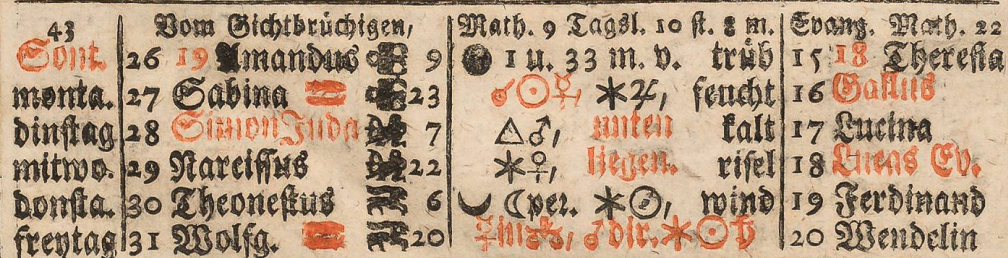 43 Vom Gichtbrüchigen, Math. 9 Tagsl. 10 st. 8 m. Evang. Math. 22
Sont. 26 19 Amandus 9 ● 1 u. 33 m. v. trüb 15 18 Theresia
monta. 27 Sabina 23 ☌☉☿ ⚹♃, feucht 16 Gallus
dinstag 28 Simon Juda 7 △♂, unten kalt 17 Lucina
mitwo. 29 Narcissus 22 ⚹♀, liegen. risel 18 Lucas Ev.
donsta. 30 Theonestus 6 ☾per. ⚹☉, wind 19 Ferdinand
freytag 31 Wolfg. 20 ♂dir. ⚹☉♄ 20 Wendelin